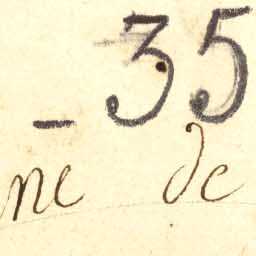 - 35
ne de